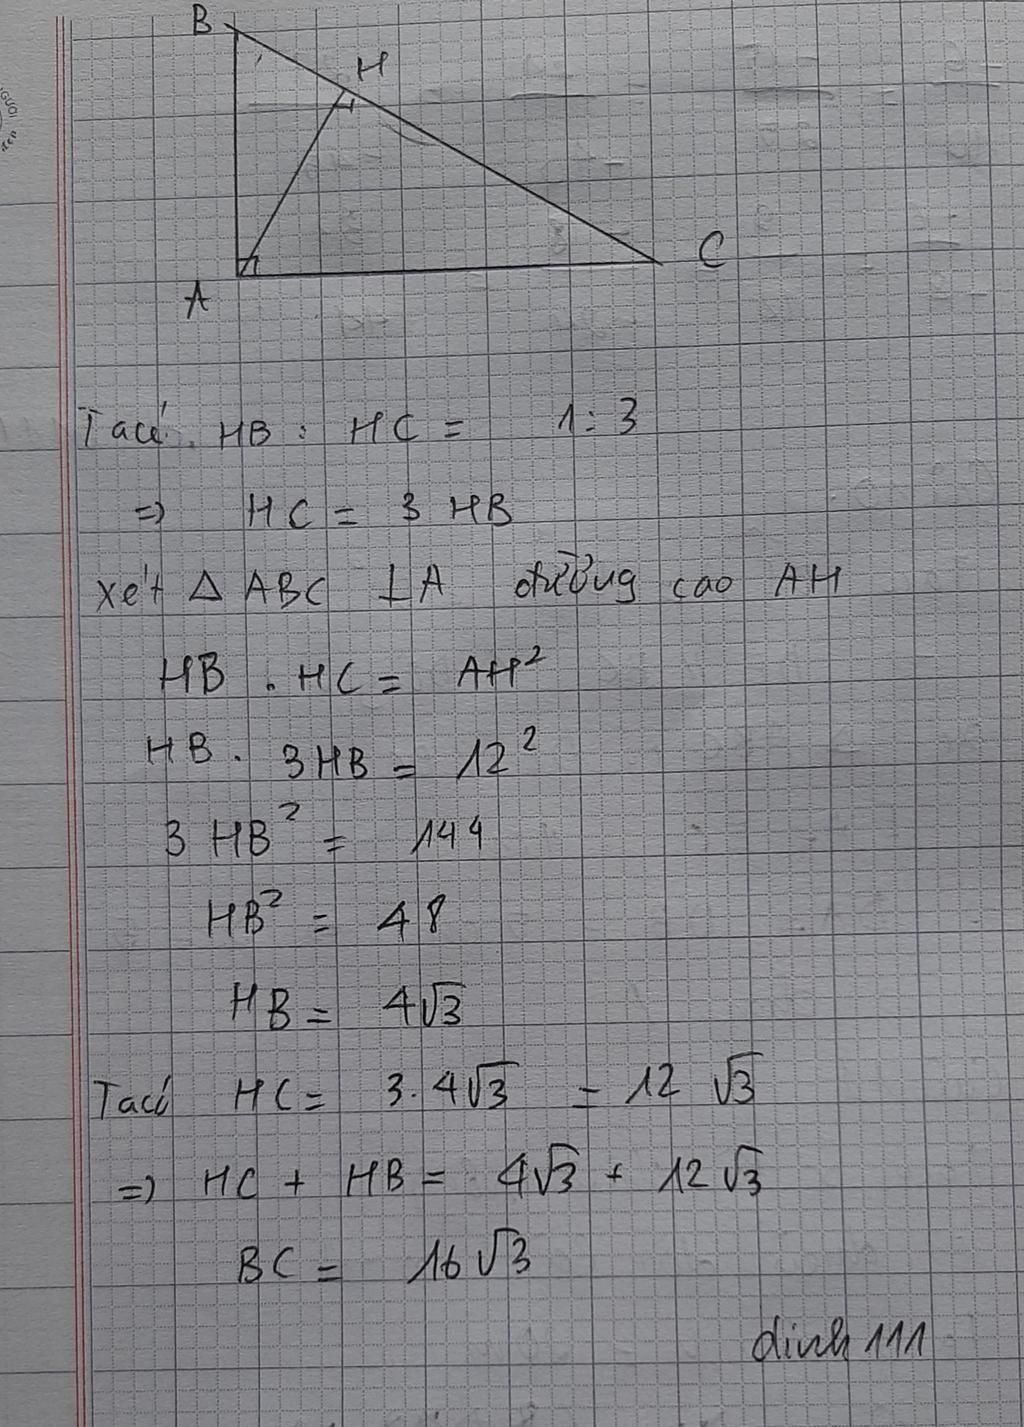 B
H
C
A
Ta có HB : HC = 1 : 3
=> HC = 3 HB
xét △ ABC ⊥A đường cao AH
HB . HC = AH²
HB . 3HB = 12²
3 HB² = 144
HB² = 48
HB = 4√3
Ta có HC = 3. 4√3 = 12 √3
=> HC + HB = 4√3 + 12 √3
BC = 16 √3
dinh 111